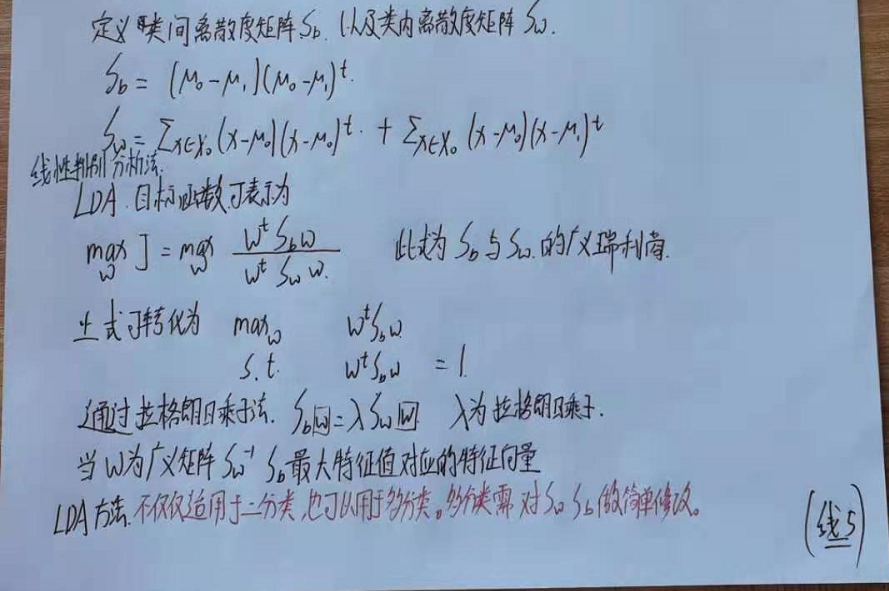 定义类间离散度矩阵 S_b. 以及类内离散度矩阵 S_w.
S_b = (μ_0 - μ_1)(μ_0 - μ_1)^t.
S_w = Σ_{x∈X_0} (x-μ_0)(x-μ_0)^t. + Σ_{x∈X_0} (x-μ_0)(x-μ_1)^t
线性判别分析法.
LDA. 目标函数可表示为
max_w J = max_w (w^t S_b w)/(w^t S_w w.) 此式为 S_b 与 S_w. 的广义瑞利商.
上式可转化为 max_w w^t S_b w.
s.t. w^t S_b w = 1.
通过拉格朗日乘子法. S_b w = λ S_w w λ为拉格朗日乘子.
当 W 为广义矩阵 S_w^{-1} S_b 最大特征值对应的特征向量
LDA 方法. 不仅仅适用于二分类, 也可以用于多分类。多分类需对 S_w S_b 做简单修改。
(线5)